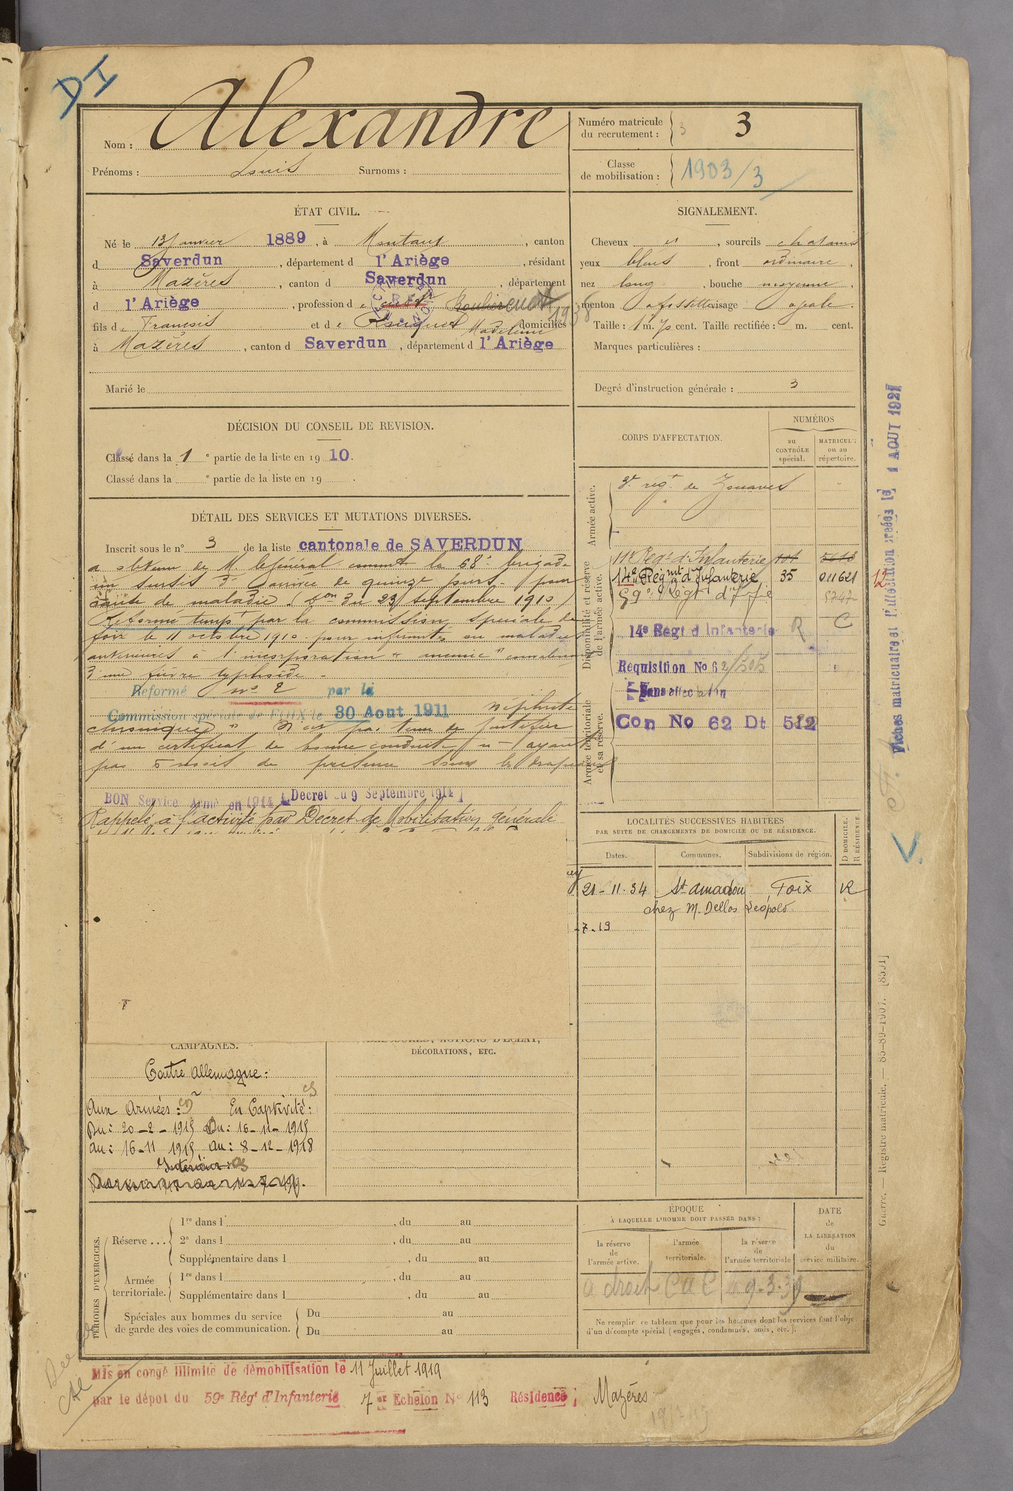 DI
Nom : Alexandre
Prénoms : Louis Surnoms :
Numéro matricule du recrutement : 3
Classe de mobilisation : 1903/3
ÉTAT CIVIL.
Né le 13 Janvier 1889, à Montaut, canton
d Saverdun, département d l'Ariège, résidant
à Mazères, canton d Saverdun, département
d l'Ariège, profession d
fils d François et d Madeleine domiciliés
à Mazères, canton d Saverdun, département d l'Ariège
Marié le
SIGNALEMENT.
Cheveux et, sourcils chatains
yeux bleus, front ordinaire,
nez long, bouche moyenne,
menton à fossette visage ovale
Taille : 1 m. cent. Taille rectifiée : m. cent.
Marques particulières :
Degré d'instruction générale : 3
DÉCISION DU CONSEIL DE REVISION.
Classé dans la 1e partie de la liste en 1910.
Classé dans la e partie de la liste en 19 .
DÉTAIL DES SERVICES ET MUTATIONS DIVERSES.
Inscrit sous le n° 3 de la liste cantonale de SAVERDUN
a obtenu de M. le Général commt la 68e brigade
un sursis d'arrivée de quinze jours pour
cause de maladie (on du 23 septembre 1910)
Réformé temp. par la commission spéciale de
Foix le 11 octobre 1910 pour infirmités ou maladies
antérieures à l'incorporation
d'une fièvre typhoïde.
Réformé n° 2 par la
Commission spéciale de FOIX le 30 Aout 1911 néphrite
chronique
d'un certificat de bonne conduite, n'ayant
pas 5 mois de présence sous les drapeaux
BON Service Armé en 1914 [Décret du 9 Septembre 1914]
Rappelé à l'activité par Décret de Mobilisation générale
CORPS D'AFFECTATION.
NUMÉROS
au contrôle spécial.
matricule ou au répertoire.
Armée active.
2e régt de Zouaves
Disponibilité et réserve de l'armée active.
14e Régmt d'Infanterie 35 011621
59e Régt d'Inf.
14e Régt d'Infanterie R C
Requisition No 62/505
Sans affectation
Armée territoriale et sa réserve.
Con No 62 Dt 512
LOCALITÉS SUCCESSIVES HABITÉES
PAR SUITE DE CHANGEMENTS DE DOMICILE OU DE RÉSIDENCE.
D DOMICILE. R RÉSIDENCE.
Dates. Communes. Subdivisions de région.
21-11-34 St Amadou Foix R
chez M. Dellos Léopold
CAMPAGNES.
DÉCORATIONS, ETC.
Contre Allemagne :
Aux Armées : En Captivité :
Du : 20-2-1915 Du : 16-11-1915
au : 16-11-1915 au : 8-12-1918
Intérieur
PÉRIODES D'EXERCICES.
Réserve ... 1re dans l , du au
2e dans l , du au
Supplémentaire dans l , du au
Armée territoriale. 1re dans l , du au
Supplémentaire dans l , du au
Spéciales aux hommes du service de garde des voies de communication. Du au
Du au
ÉPOQUE
À LAQUELLE L'HOMME DOIT PASSER DANS :
la réserve de l'armée active.
l'armée territoriale.
la réserve de l'armée territoriale
DATE de LA LIBÉRATION du service militaire.
a droit C du C
Ne remplir ce tableau que pour les hommes dont les services font l'objet d'un décompte spécial (engagés, condamnés, omis, etc.).
Mis en congé illimité de démobilisation le 11 Juillet 1919
par le dépot du 59e Rég' d'Infanterie 7e Echelon N° 113 Résidence ; Mazères
Fiches matriculaire et d'affection créées le 1 AOUT 1927
Guerre. — Registre matricule. — 85-89-1907. [8351]